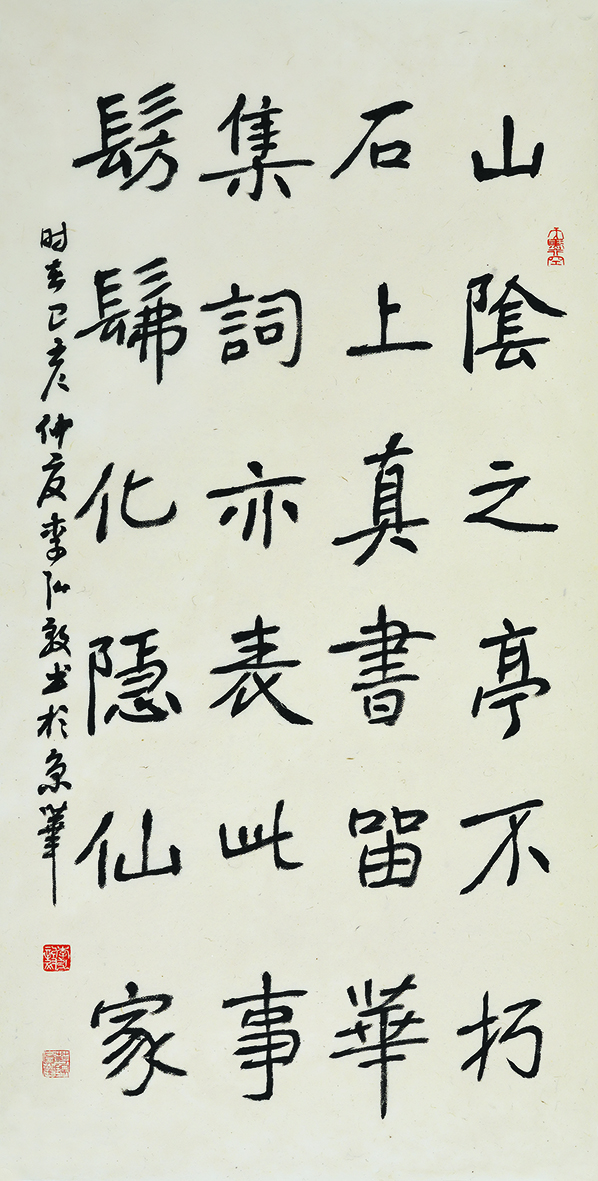 山陰之亭不朽
石上真書留華
集詞亦表此事
髣髴化隱仙家
时在己亥仲夏李弘毅书於京華